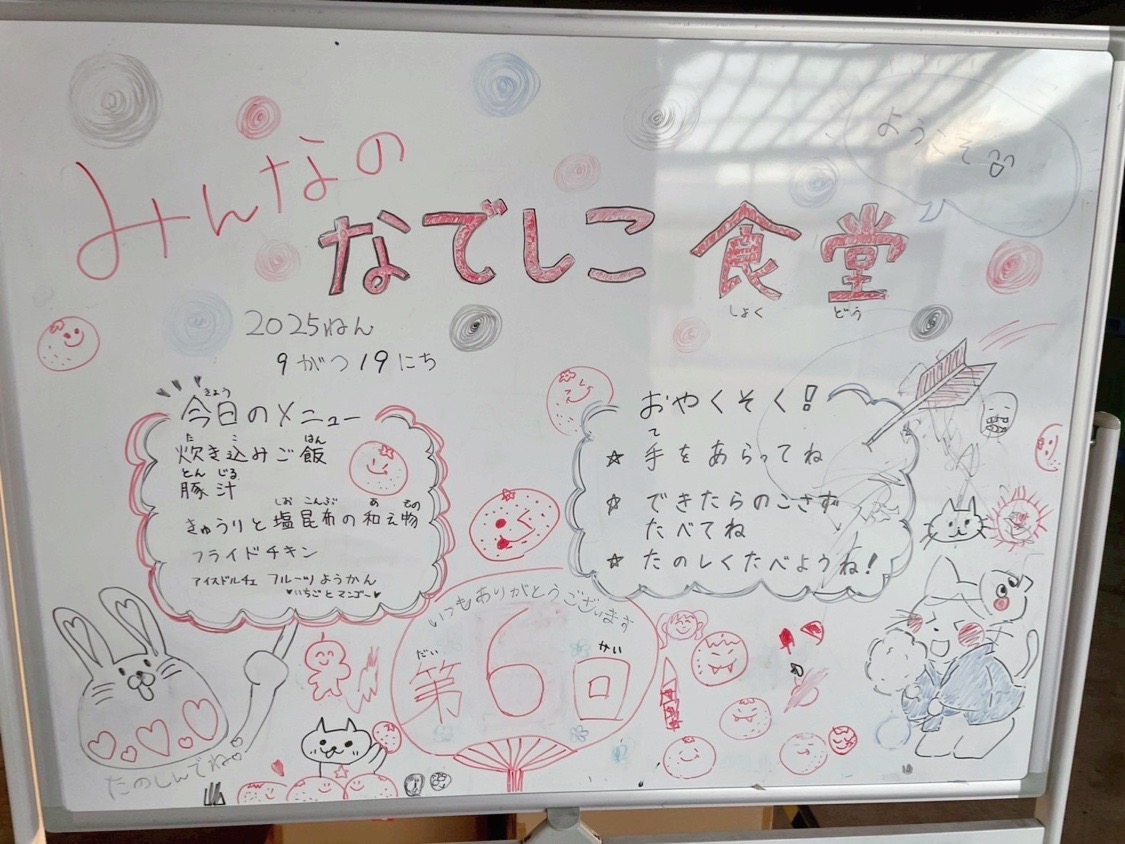 ようこそ
みんなの
なでしこ食堂
しょく どう
2025ねん
9がつ19にち
きょう
今日のメニュー
た こ はん
炊き込みご飯
とん じる
豚汁
しお こんぶ あ もの
きゅうりと塩昆布の和え物
フライドチキン
アイスドルチェ フルーツようかん
♥いちごとマンゴー♥
おやくそく!
て
☆ 手をあらってね
☆ できたらのこさず
たべてね
☆ たのしくたべようね!
いつもありがとうございます
だい かい
第6回
たのしんでね♡